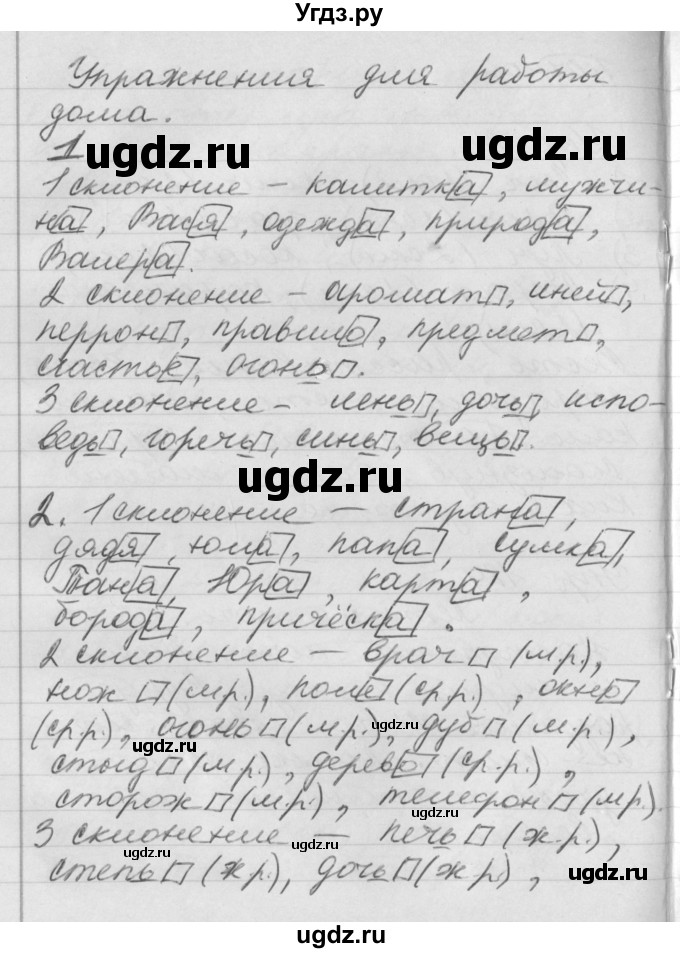 Угдз.ру
Упражнения для работы
дома.
1
ugdz.ru
ugdz.ru
1 склонение – калитка, мужчи-
на, Вася, одежда, природа,
Валера.
2 склонение – аромат, иней,
перрон, правило, предмет,
счастье, огонь.
3 склонение – лень, дочь, испо-
ведь, горечь, синь, вещь.
ugdz.ru
2. 1 склонение – страна,
дядя, юла, папа, сумка,
Юра, карта,
борода, причёска.
2 склонение – врач (м.р.),
нож (м.р.), поле (ср.р.), окно
ugdz.ru
(ср.р.), огонь (м.р.), дуб (м.р.),
ugdz.ru
стыд (м.р.), дерево (ср.р.),
ugdz.ru
сторож (м.р.), телефон (м.р.).
3 склонение – печь (ж.р.),
ugdz.ru
степь (ж.р.), дочь (ж.р.),
ugdz.ru
ugdz.ru